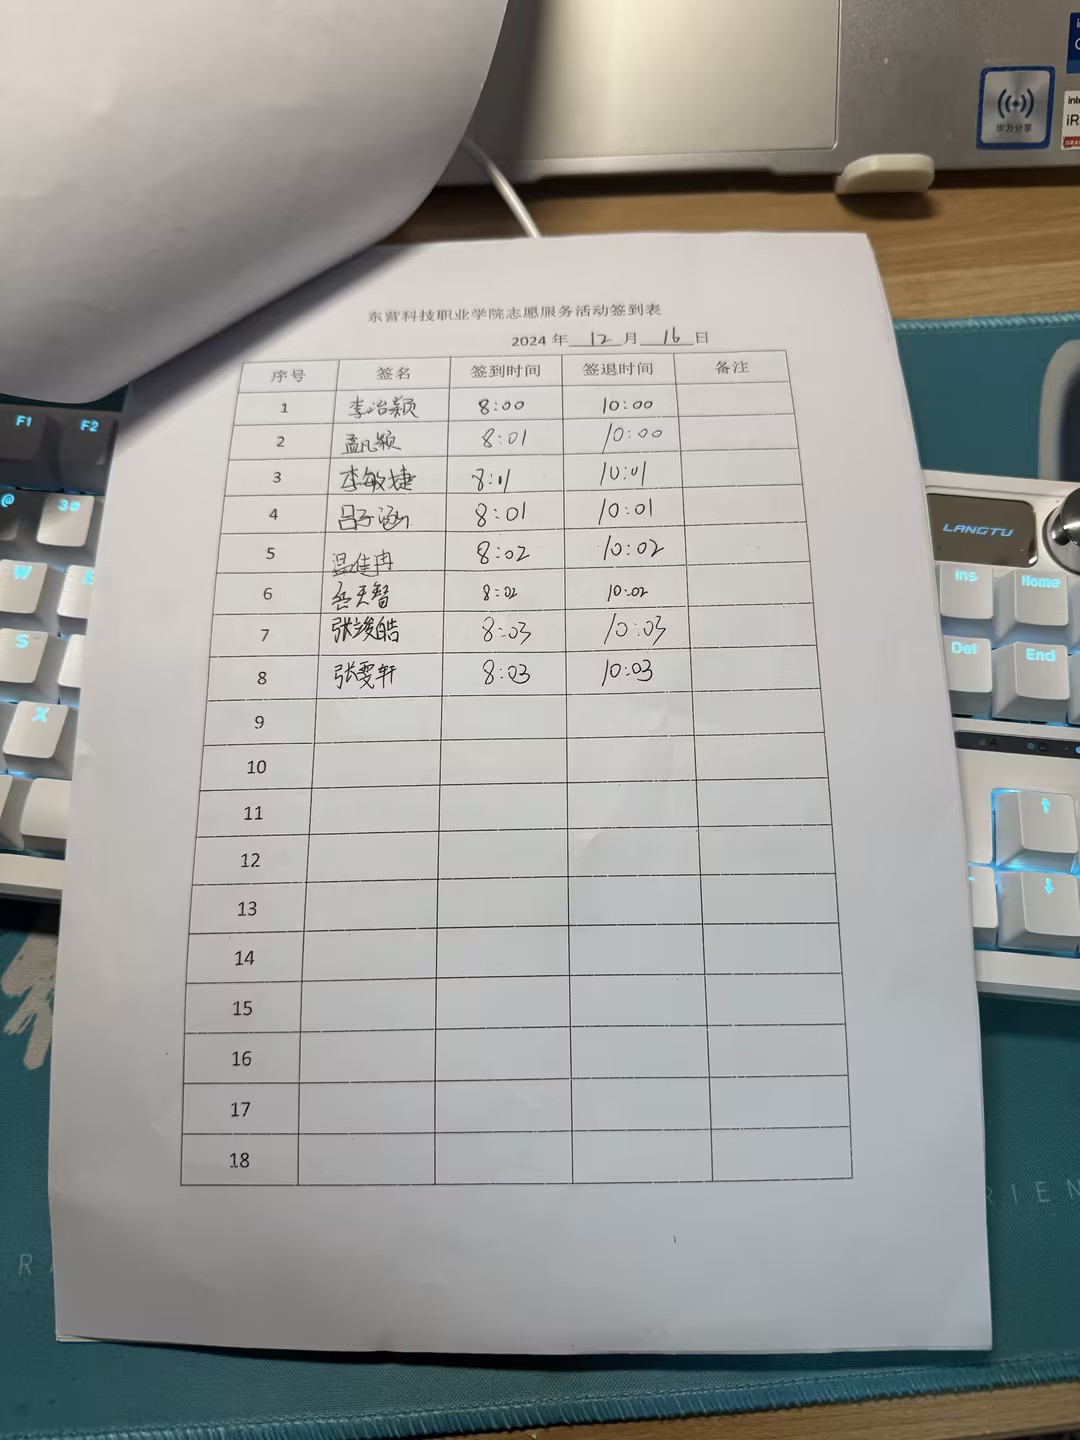 华为分享
inte
iR
东营科技职业学院志愿服务活动签到表
2024 年 12 月 16 日
序号 签名 签到时间 签退时间 备注
1 李冶颖 8:00 10:00
2 孟凡颖 8:01 10:00
3 李敏捷 8:01 10:01
4 吕子涵 8:01 10:01
5 温佳冉 8:02 10:02
6 岳天智 8:02 10:02
7 张竣皓 8:03 10:03
8 张雯轩 8:03 10:03
9
10
11
12
13
14
15
16
17
18
F1 F2
@ 3#
W E
S
X
LANGTU
Ins Home
Del End
RIEN
R